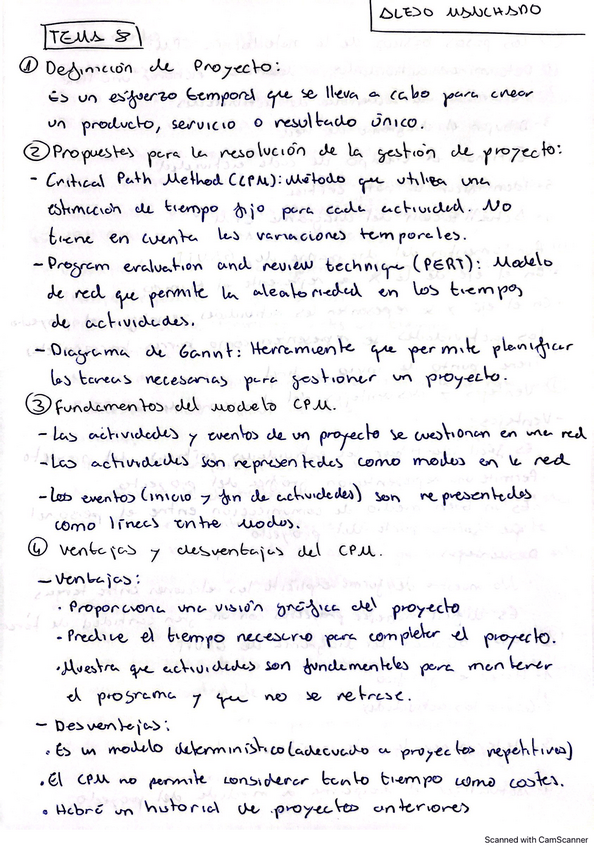 ALEJO MANCHADO
TEMA 8
① Definición de Proyecto:
Es un esfuerzo temporal que se lleva a cabo para crear
un producto, servicio o resultado único.
② Propuestas para la resolución de la gestión de proyecto:
- Critical Path Method (CPM): Método que utiliza una
estimación de tiempo fijo para cada actividad. No
tiene en cuenta las variaciones temporales.
- Program evaluation and review technique (PERT): Modelo
de red que permite la aleatoriedad en los tiempos
de actividades.
- Diagrama de Gannt: Herramienta que permite planificar
las tareas necesarias para gestionar un proyecto.
③ Fundamentos del modelo CPM.
- Las actividades y eventos de un proyecto se cuestionan en una red
- Las actividades son representadas como nodos en la red
- Los eventos (inicio y fin de actividades) son representados
como líneas entre nodos.
④ Ventajas y desventajas del CPM.
- Ventajas:
· Proporciona una visión gráfica del proyecto
· Predice el tiempo necesario para completar el proyecto.
· Muestra que actividades son fundamentales para mantener
el programa y que no se retrase.
- Desventajas:
· Es un modelo determinístico (adecuado a proyectos repetitivos)
· El CPM no permite considerar tanto tiempo como costes.
· Habrá un historial de proyectos anteriores
Scanned with CamScanner